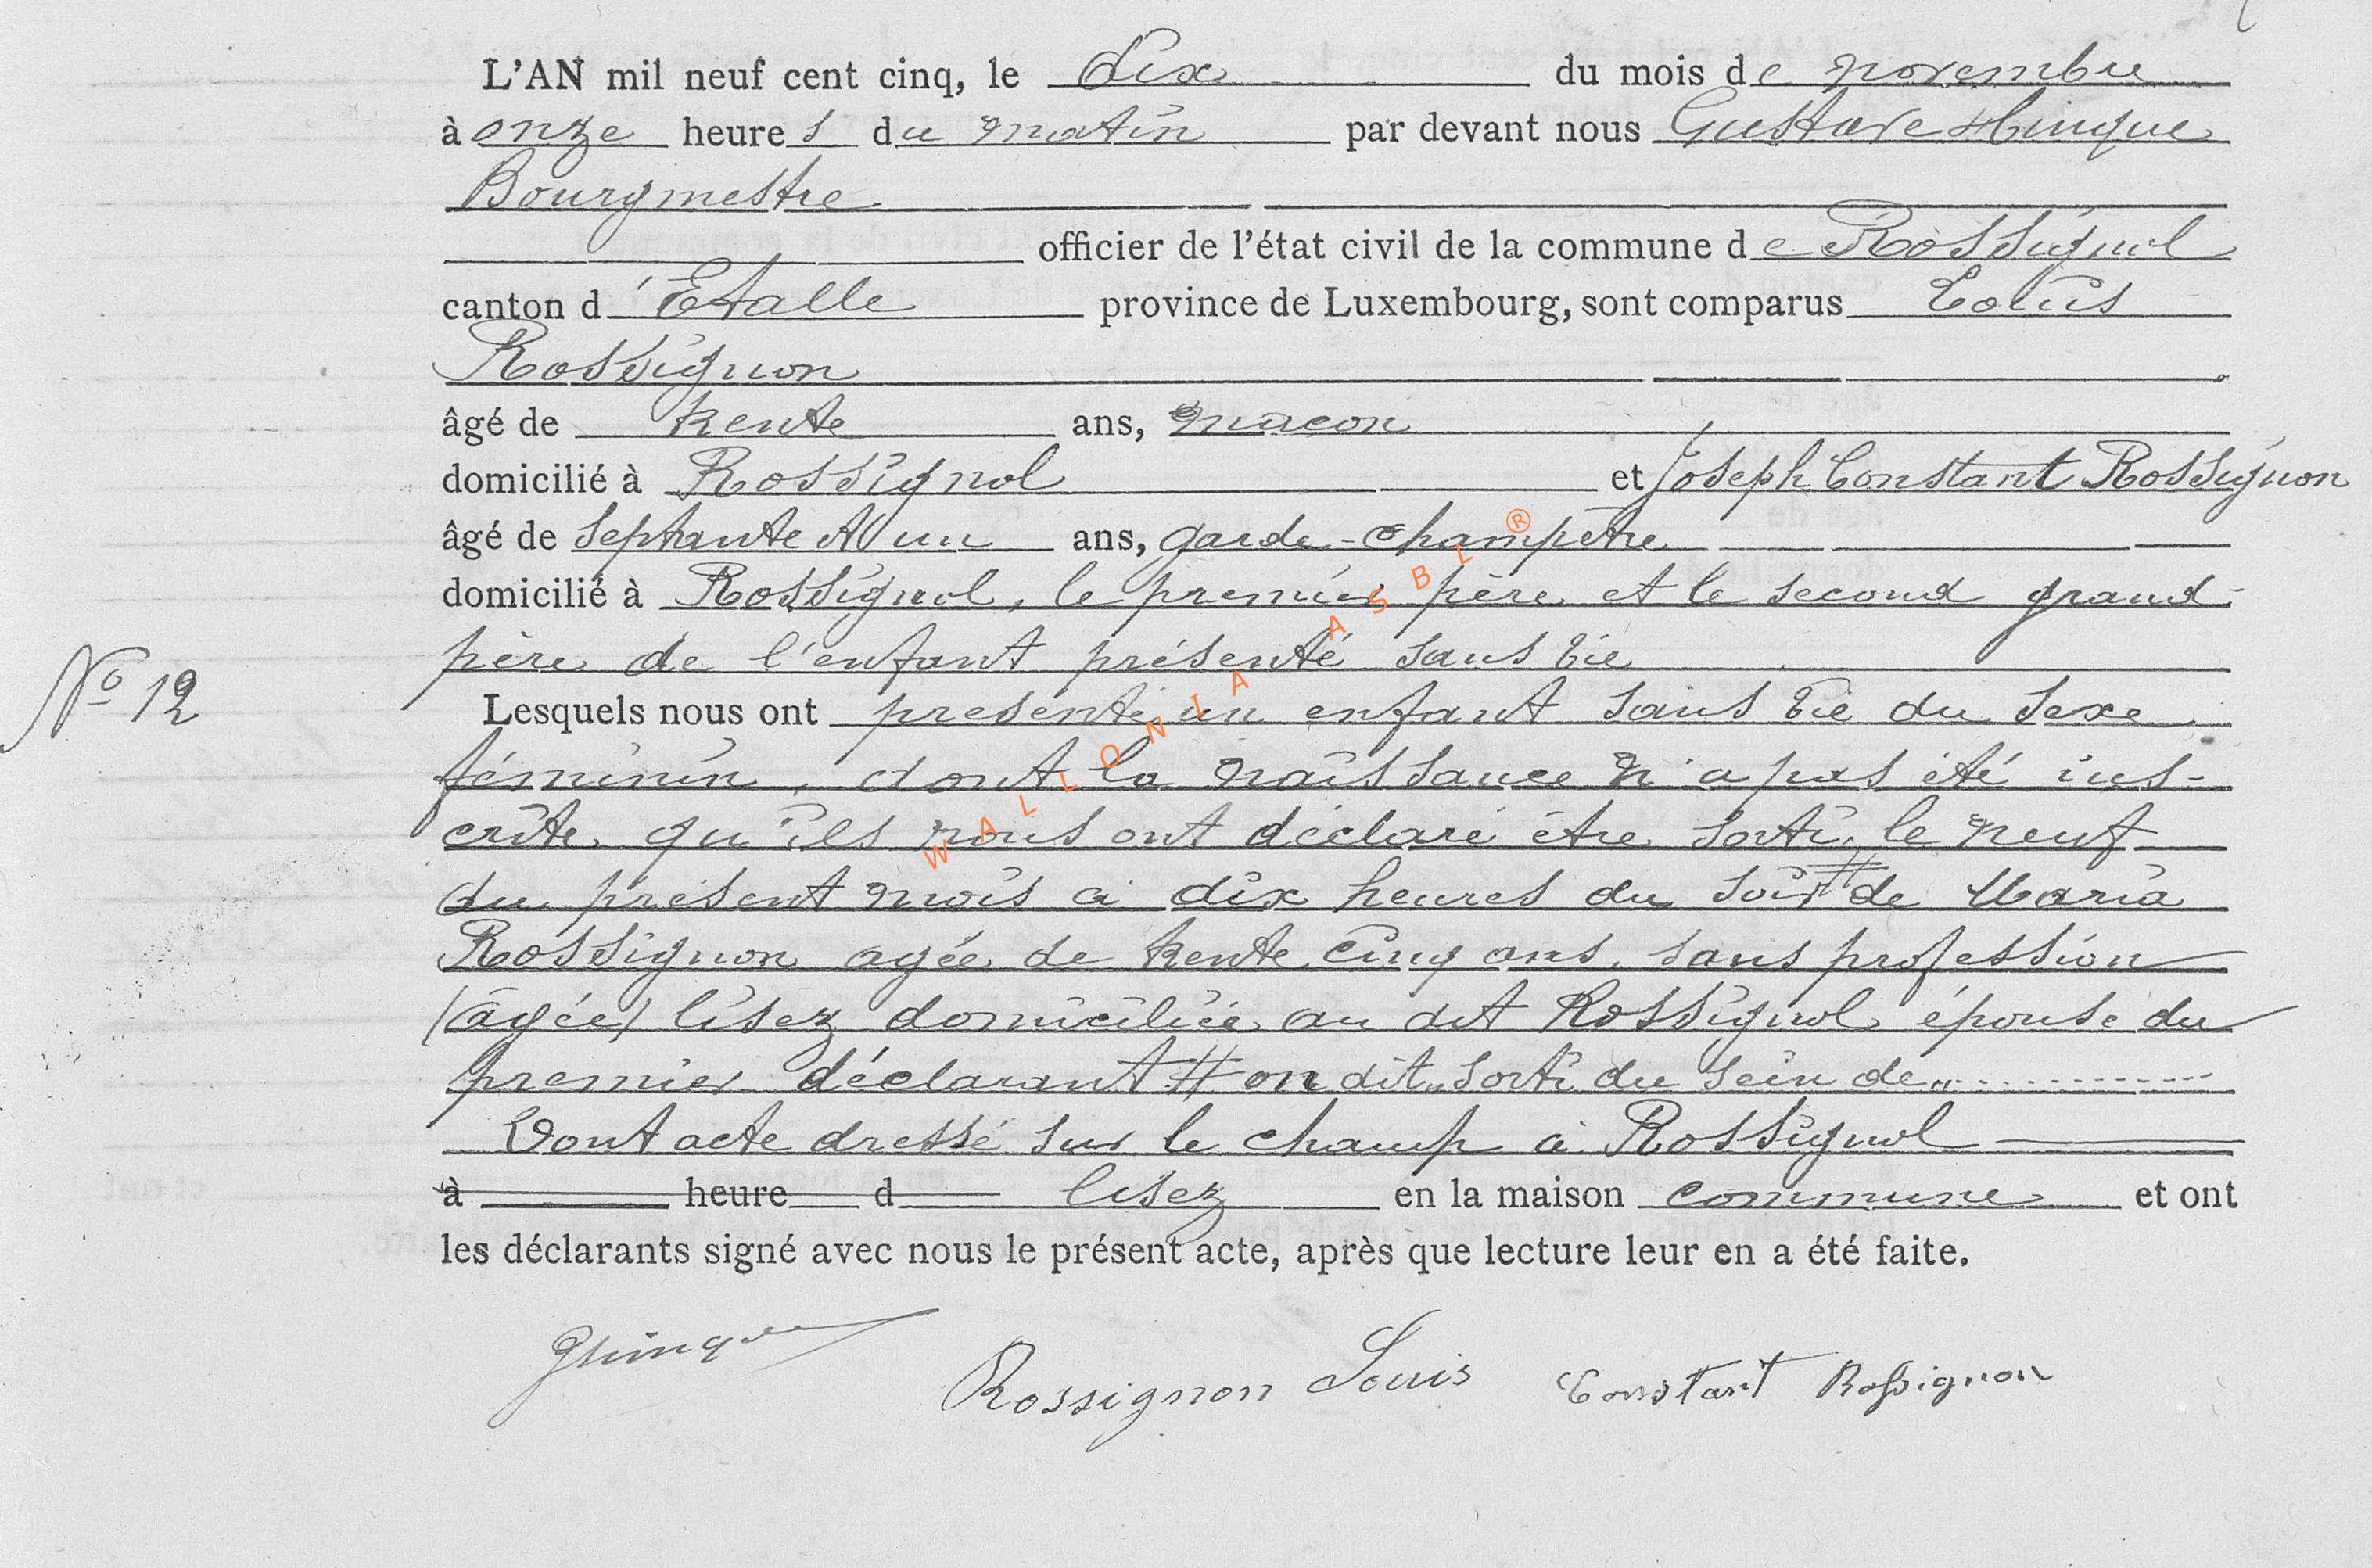 L'AN mil neuf cent cinq, le dix du mois de novembre
à onze heures du matin par devant nous Gustave Hinque
Bourgmestre
officier de l'état civil de la commune de Rossignol
canton d'Etalle province de Luxembourg, sont comparus Louis
Rossignon
âgé de trente ans, maçon
domicilié à Rossignol et Joseph Constant Rossignon
âgé de septante et un ans, garde-champêtre
domicilié à Rossignol, le premier père et le second grand-
père de l'enfant présenté sans vie
N° 12
Lesquels nous ont présenté un enfant sans vie du sexe
féminin, dont la naissance n'a pas été ins-
crite, qu'ils nous ont déclaré être sorti, le neuf
du présent mois à dix heures du soir # de Maria
Rossignon agée de trente cinq ans, sans profession
(agée) lisez domiciliée au dit Rossignol épouse du
premier déclarant # on dit "sorti du sein de"
Dont acte dressé sur le champ à Rossignol
à heure d lisez en la maison commune et ont
les déclarants signé avec nous le présent acte, après que lecture leur en a été faite.
GHinque
Rossignon Louis Constant Rossignon
WALLONIA ASBL ®